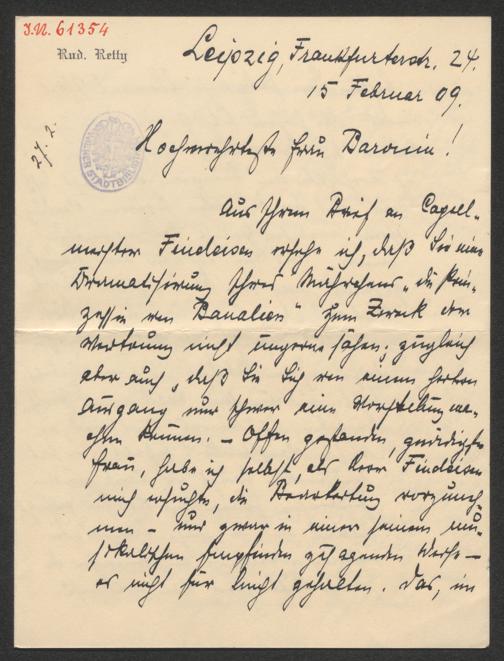 J.N. 61354
Rud. Retty
Leipzig, Frankfurterstr. 24.
15 Februar 09.
27. 2.
Hochverehrteste Frau Baronin!
Aus Ihrem Brief an Capell-
meister Findeisen ersehe ich, daß Sie eine
Dramatisirung Ihres Märchens „die Prin-
zessin von Banalien" zum Zweck der
Vertonung nicht ungerne sähen, zugleich
aber auch, daß Sie sich von einem heitern
Ausgang nur schwer eine Vorstellung ma-
chen können. – Offen gestanden, gnädigste
Frau, habe ich selbst, als Herr Findeisen
mich ersuchte, die Bearbeitung vorzuneh-
men – und zwar in einer seinem mu-
sikalischen Empfinden zusagenden Weise –
es nicht für leicht gehalten. Das, im